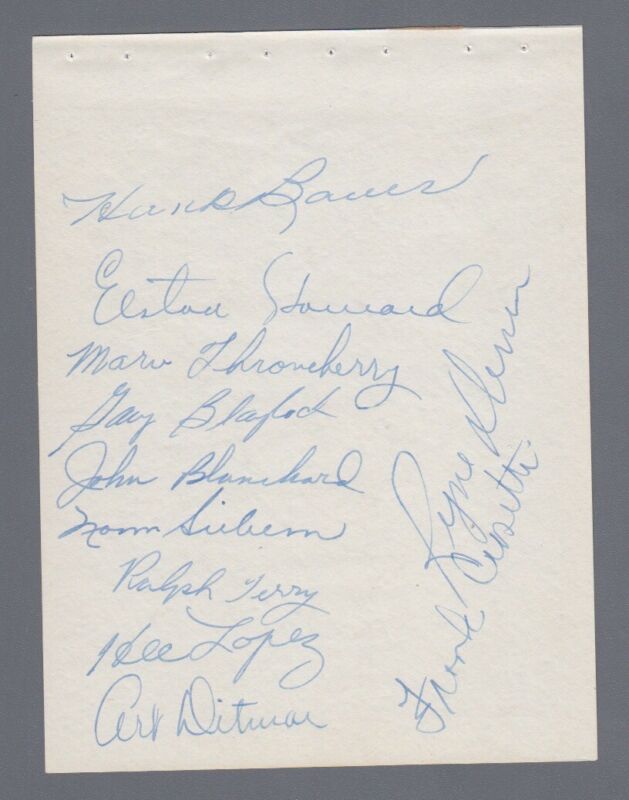 Hank Bauer
Elston Howard
Marv Throneberry
Gary Blaylock
John Blanchard
Norm Siebern
Ralph Terry
Hec Lopez
Art Ditmar
Ryne Duren
Frank Crosetti